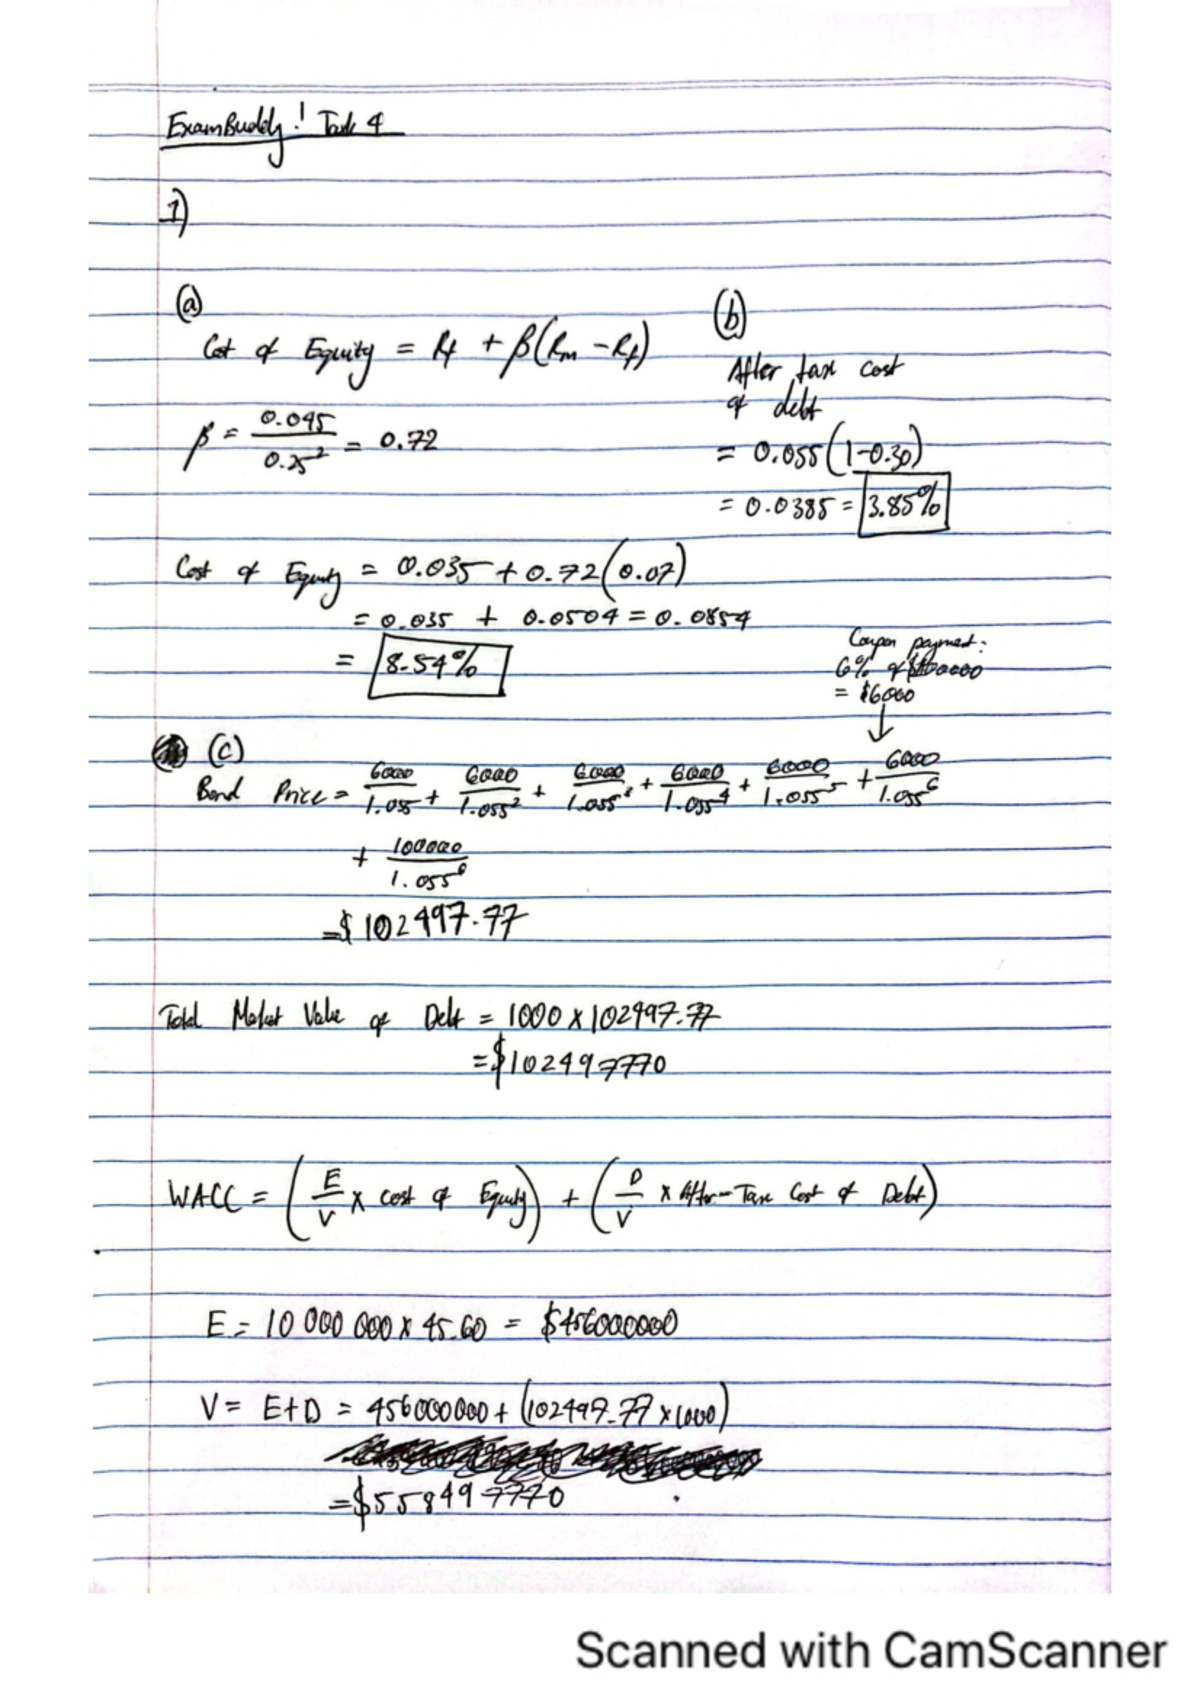 ExamBuddy! Task 4
1)
(a)
Cost of Equity = Rf + β(Rm - Rf)
β = 0.045 / 0.25² = 0.72
Cost of Equity = 0.035 + 0.72(0.07)
= 0.035 + 0.0504 = 0.0854
= 8.54%
(b)
After tax cost
of debt
= 0.055(1-0.30)
= 0.0385 = 3.85%
Coupon payment:
6% of $100000
= $6000
↓
(c)
Bond Price = 6000/1.055 + 6000/1.055² + 6000/1.055³ + 6000/1.055⁴ + 6000/1.055⁵ + 6000/1.055⁶
+ 100000/1.055⁶
= $102497.77
Total Market Value of Debt = 1000 × 102497.77
= $102497770
WACC = (E/V × cost of Equity) + (D/V × After-Tax Cost of Debt)
E = 10 000 000 × 45.60 = $456000000
V = E+D = 456000000 + (102497.77 × 1000)
= $558497770
Scanned with CamScanner